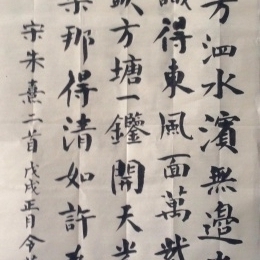 芳泗水濱無邊
識得東風面萬紫
畝方塘一鑑開天光
渠那得清如許為
宋朱熹二首戊戌正月令